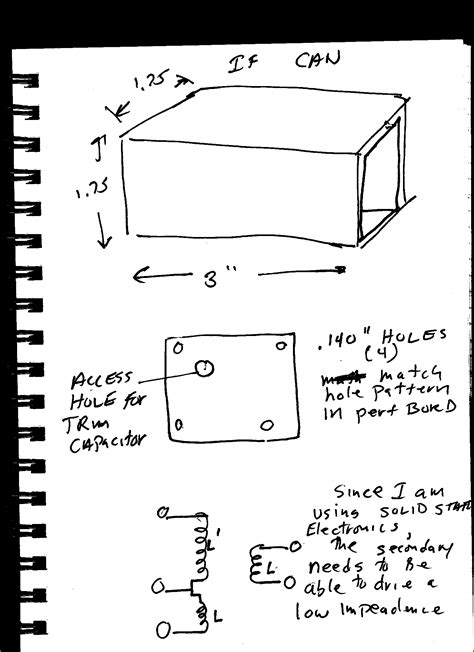 IF CAN
1.25
1.25
3"
.140" HOLES
(4)
match
hole pattern
IN perf BoreD
ACCESS
HOLE for
TRIM
CAPACITOR
Since I am
using SOLID STATE
Electronics,
The secondary
needs to be
able to drie a
low Impeadence
L'
L
L